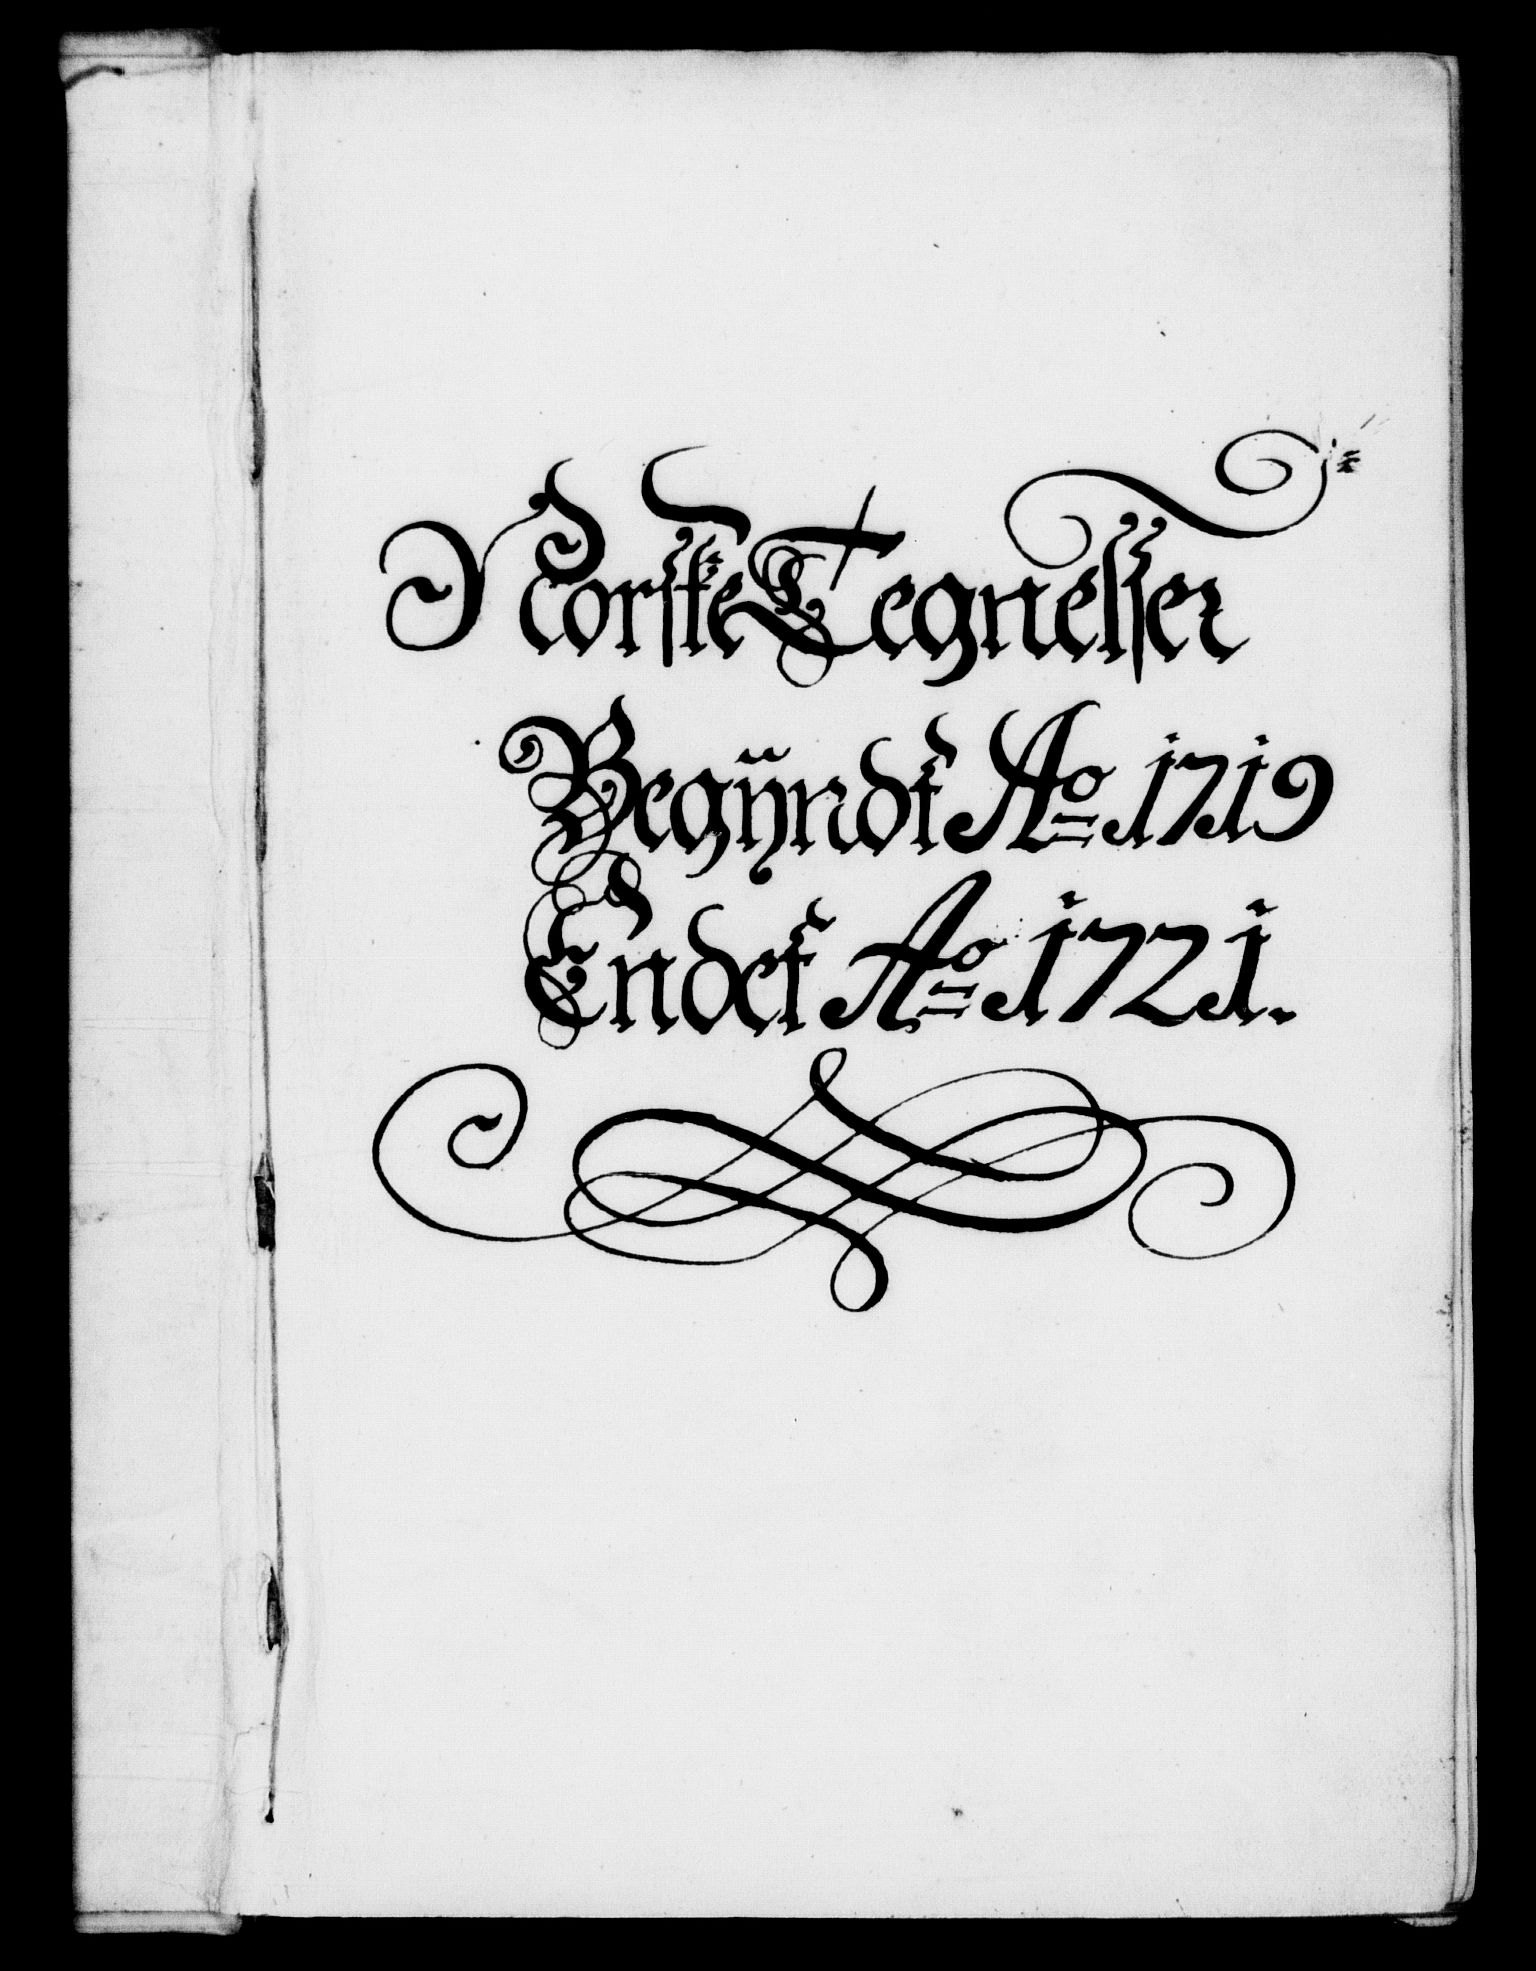 Norske Tegnelser
Begÿndt Ao 1719
Endet Ao 1721.